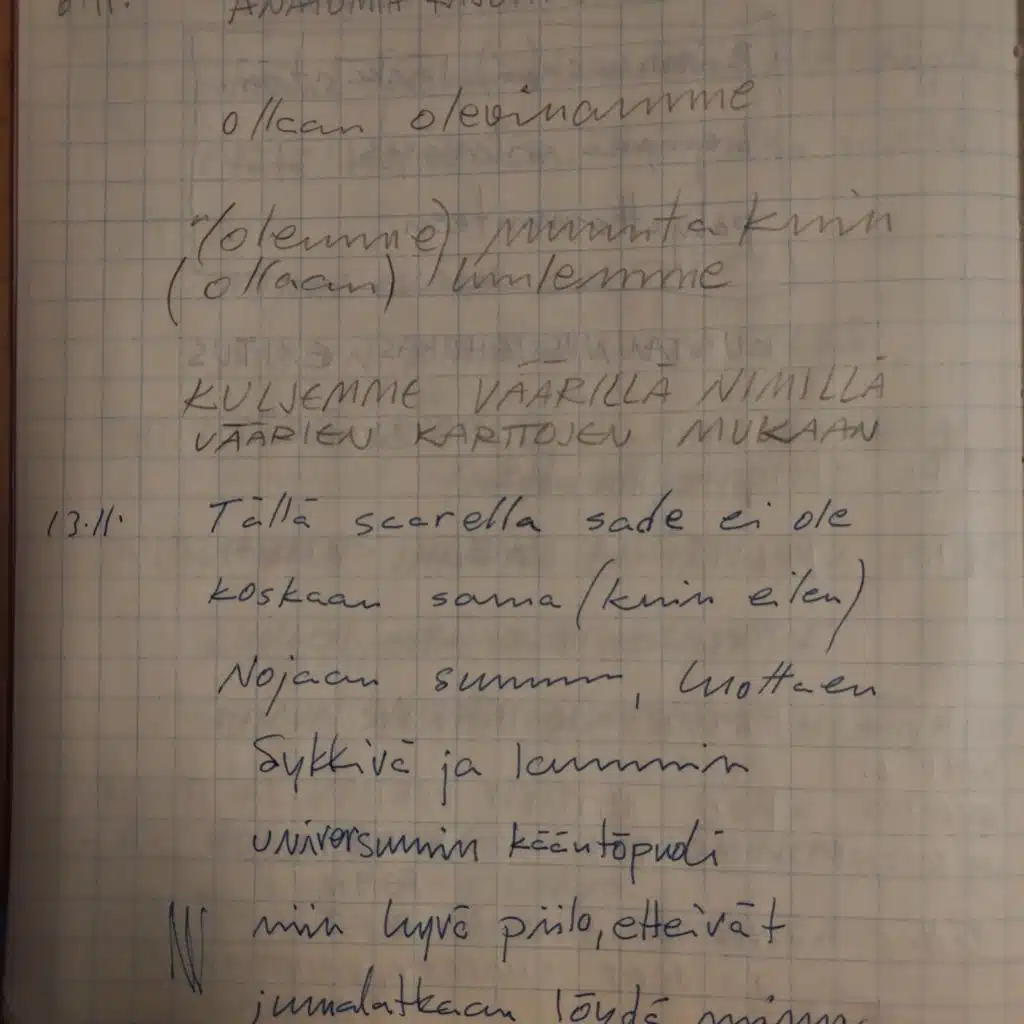 6.11. ANATOMIA
ollaan olevinamme
"(olemme) muuta kuin
(ollaan) luulemme
KULJEMME VÄÄRILLÄ NIMILLÄ
VÄÄRIEN KARTTOJEN MUKAAN
13.11. Tällä saarella sade ei ole
koskaan sama (kuin eilen)
Nojaan suuruun, luottaen
Sykkivä ja lämmin
universumin kääntöpuoli
niin hyvä piilo, etteivät
jumalatkaan löydä minua